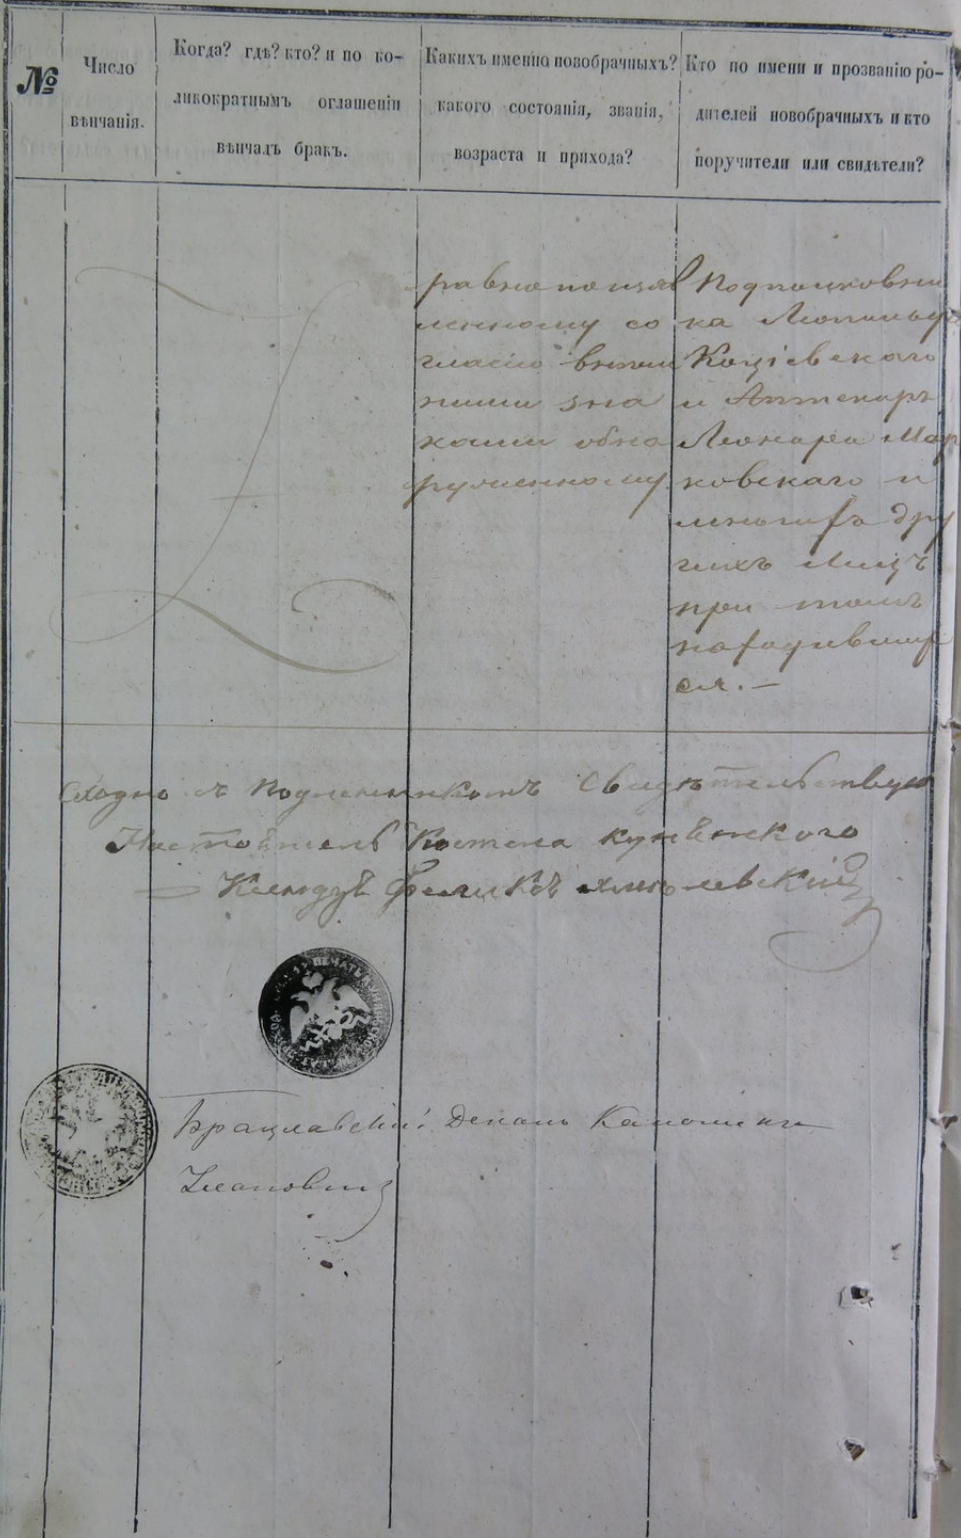 №
Число
вѣнчанія.
Когда? гдѣ? кто? и по ко-
ликократнымъ оглашеніи
вѣнчалъ бракъ.
Какихъ именно новобрачныхъ?
какого состоянія, званія,
возраста и прихода?
Кто по имени и прозванію ро-
дителей новобрачныхъ и кто
поручители или свидѣтели?
равно по изъяв
ленному со
гласію внѣш
ними зна
ками обна
руженному.
Подполковни
ка Леопольда
Коціевскаго
и Аптекаря
Леонарда Мар
ковскаго и
многихъ дру
гихъ лицъ
при томъ
находивших
ся. —
Сходно съ подлинникомъ свидѣтельствую
Настоятель Костела
Ксендзъ Феликсъ
Брацлавскій Деканъ Каноникъ